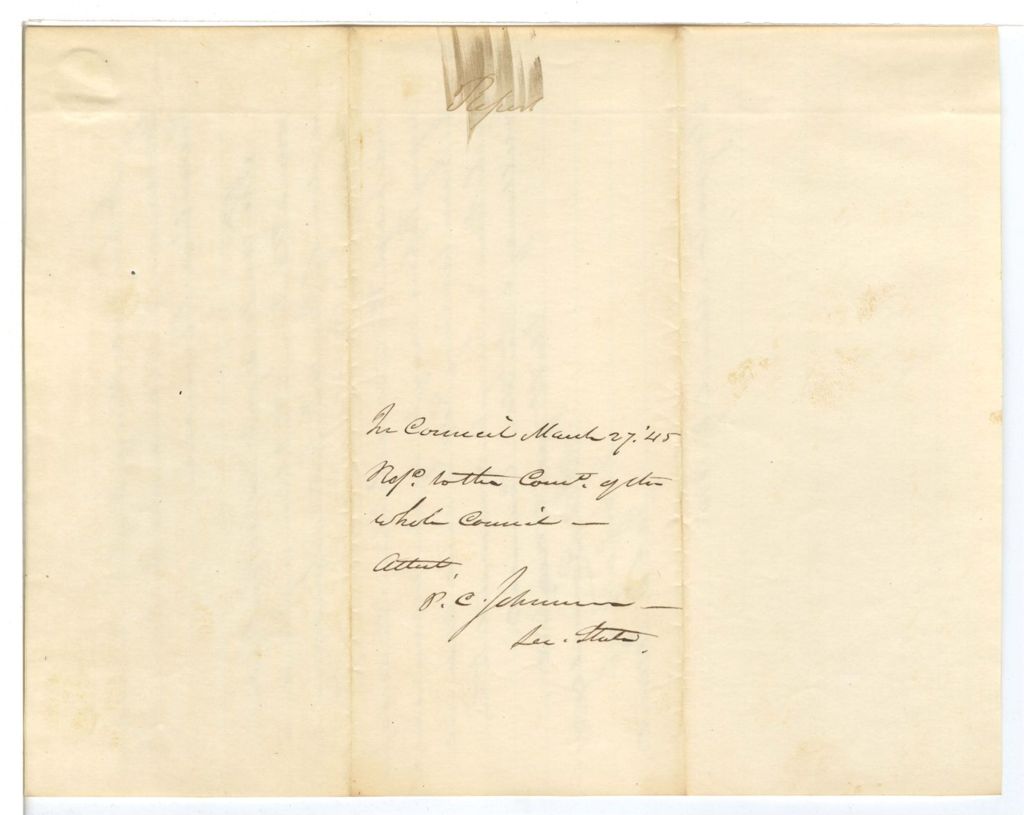 Report
In Council March 27. '45
Refd. to the Come. of the
whole Council —
Attest,
P. C. Johnson —
Sec. State.